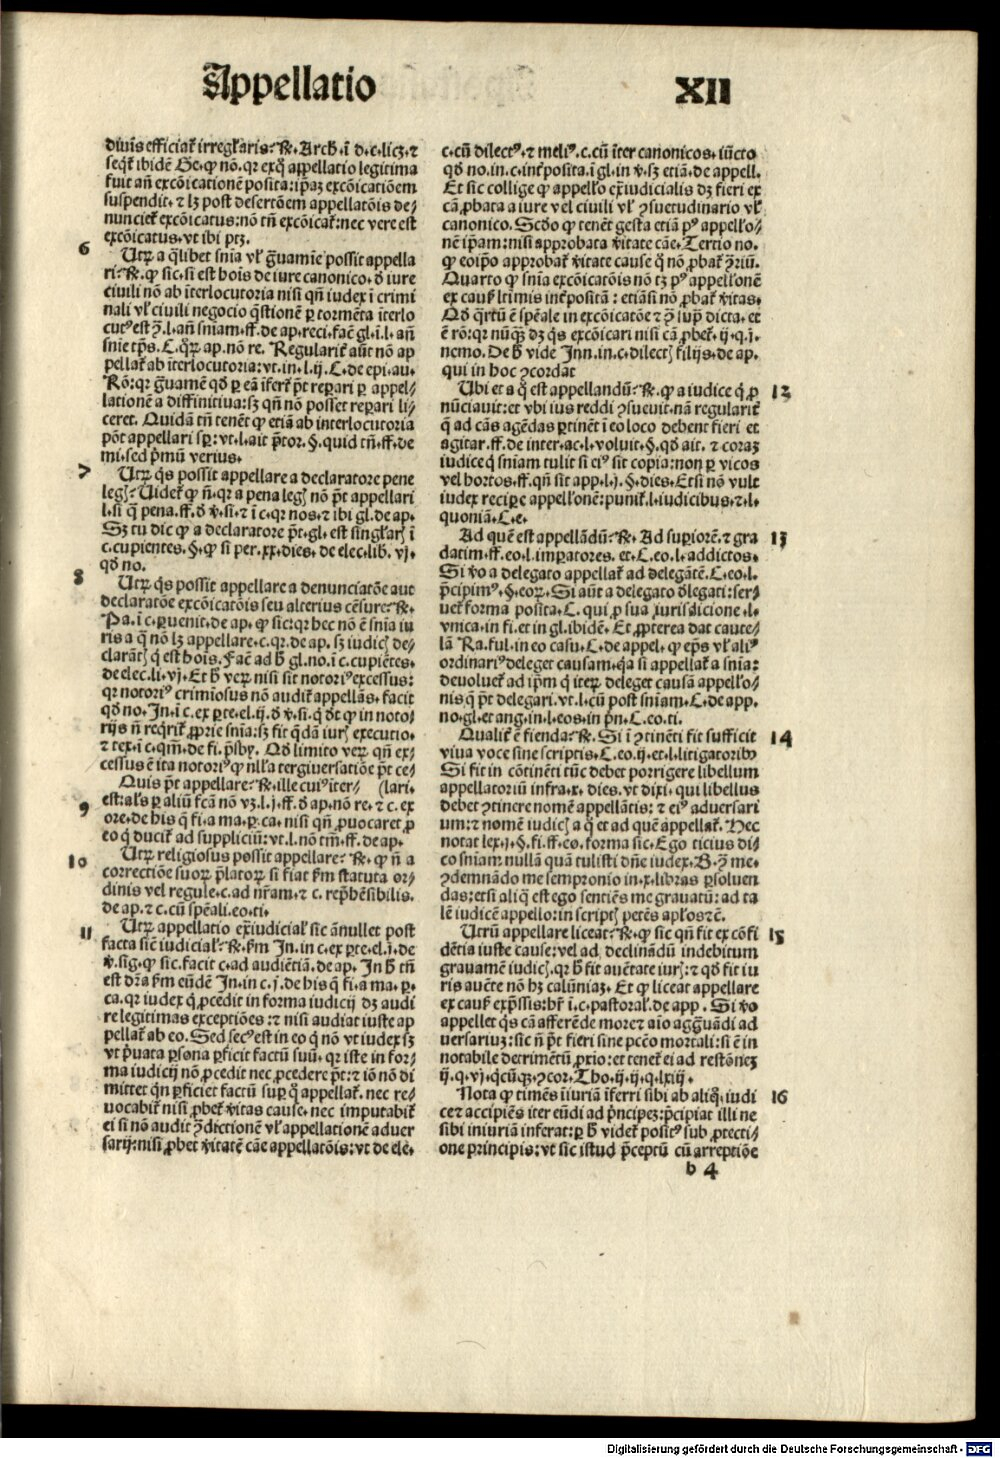 Appellatio XII
diuīs efficiat irregłaris: ℟. Arch. ī d. c. licꝫ. ⁊
seqt̄ ibidē Ge. ꝙ nō. qꝛ exq̄ appellatio legitima
fuit añ excōicationē posita: ip̄aꝫ excōicatiōem
suspendit. ⁊ lꝫ post desertōem appellatōis de⸗
nunciet excōicatus: nō tñ excōicat̄: nec vere est
excōicatus. vt ibi ptꝫ.
6
Utꝝ a q̄libet snīa vł g̃uamīe possit appella
ri: ℟. ꝙ sic. si est hoīs de iure canonico. ð iure
ciuili nō ab īterlocutoria nisi qñ iudex ī crimi
nali vł ciuili negocio q̄stionē ꝑ tormēta īterlo
cutꝰ est ꝯ̄. l. añ sniam. ff. de ap. reci. facē gl. ī. l. añ
snīe tp̄s. C. q̄ꝝ ap. nō re. Regularit̄ aūt nō ap
pellat̄ ab īterlocutoria: vt. in. l. ij. C. de epi. au.
Rō: qꝛ g̃uamē qð ꝑ eā īfert̄ pt̄ repari ꝑ appel⸗
lationē a diffinitiua: sꝫ qñ nō posset repari li⸗
ceret. Quidā tñ tenēt ꝙ etiā ab interlocutoria
pōt appellari sꝑ: vt. l. ait p̄tor. §. quid tñ. ff. de
mi. sed p̄mū verius.
7
Utꝝ q̄s possit appellare a declaratore pene
legꝭ: Uidet̄ ꝙ ñ. qꝛ a pena legꝭ nō p̄t appellari
l. si q̄ pena. ff. ð v̄. si. ⁊ ī c. qꝛ nos. ⁊ ibi gl. de ap.
Sꝫ tu dic ꝙ a declaratore p̄t. gl. est singłarꝭ ī
c. cupientes. §. ꝙ si per. xx. dies. de elec. lib. vj.
qð no.
8
Utꝝ q̄s possit appellare a denunciatōe aut
declaratōe excōicatōis seu alterius cēsure: ℟.
Pa. ī c. ꝑuenit. de ap. ꝙ sic: qꝛ hec nō ē snīa iu
ris a q̄ nō lꝫ appellare. c. qꝛ. de ap. sꝫ iudicꝭ de⸗
clarātꝭ q̄ est hoīs. Facē ad h̄ gl. no. ī c. cupiētes.
de elec. li. vj. Et h̄ veꝝ nisi sit notoriꝰ excessus:
qꝛ notoriꝰ crimīosus nō audit̄ appellās. facit
qð no. In. ī c. ex ꝑte. el. ij. ð v̄. si. q̄ ðt ꝙ in noto⸗
rijs ñ reqrit̄ ꝓprie snīa: sꝫ fit q̄dā iurꝭ executio.
⁊ tex. ī c. qm̄. de fi. p̄sby. Qð limito veꝝ. qñ ex⸗
cessus ē ita notoriꝰ ꝙ nlla tergiuersatiōe p̄t ce⸗
(lari.
Quis p̄t appellare: ℟. ille cuiꝰ īter⸗
9
est: als ꝑ aliū fcā nō vꝫ. l. j. ff. ð ap. nō re. ⁊ c. ex
ore. de his q̄ fi. a ma. ꝑ. ca. nisi qñ ꝓuocaret ꝓ
eo q̄ ducit̄ ad suppliciū: vt. l. nō tm̄. ff. de ap.
10
Utꝝ religiosus possit appellare: ℟. ꝙ ñ a
correctiōe suoꝝ p̄latoꝝ si fiat ẜm statuta or⸗
dinis vel regule. c. ad nr̄am. ⁊ c. rep̄hēsibilis.
de ap. ⁊ c. cū sp̄eali. eo. ti.
11
Utꝝ appellatio ex̄iudicial' sic ānullet post
facta sicē iudicial': ℟. ẜm In. in c. ex ꝑte. el. ī. de
v̄. sig. ꝙ sic. facit c. ad audiētiā. de ap. In h̄ tñ
est dr̄a ẜm eūdē In. in c. j. de his q̄ fi. a ma. ꝑ.
ca. qꝛ iudex q̄ ꝓcedit in forma iudicij dꝫ audi
re legitimas exceptiōes: ⁊ nisi audiat iuste ap
pellat̄ ab eo. Sed secꝰ est in eo q̄ nō vt iudex sꝫ
vt p̄uata ꝑsona ꝑficit factū suū. qꝛ iste in for⸗
ma iudicij nō ꝓcedit nec ꝓcedere p̄t: ⁊ iō nō di
mittet qn ꝑficiet factū suꝑ q̄ appellat̄. nec re⸗
uocabit̄ nisi ꝓbet̄ v̄itas cause. nec imputabit̄
ei si nō audit ꝯ̄dictionē vł appellationē aduer
sarij: nisi ꝓbet v̄itatē cāe appellatōis: vt de ele.
c. cū dilectꝰ. ⁊ meliꝰ. c. cū īter canonicos. iūcto
qð no. in. c. int̄posita. ī gl. in v̄. sꝫ etiā. de appell.
Et sic collige ꝙ appello ex̄iudicialis dꝫ fieri ex
cā ꝓbata a iure vel ciuili vł ꝯsuetudinario vł
canonico. Scðo ꝙ tenēt gesta etiā pꝰ appello⸗
nē ip̄am: nisi approbata v̄itate cāe. Tertio no.
ꝙ eoip̄o approbat̄ v̄itate cause q̄ nō ꝓbat̄ ꝯ̄riū.
Quarto ꝙ snīa excōicatōis nō tꝫ pꝰ appellonē
ex causꝭ ltimis int̄positā: etiāsi nō ꝓbat̄ v̄itas.
Qð q̄rtū ē sp̄eale in excōicatōe ⁊ ꝯ̄ suꝑ dicta. et
ē rō: qꝛ nūqꝫ dꝫ q̄s excōicari nisi cā ꝓbet̄. ij. q. j.
nemo. De h̄ vide Inn. in. c. dilectꝭ filijs. de ap.
qui in hoc ꝯcordat
12
Ubi et a q̄ est appellandū: ℟. ꝙ a iudice q̄ ꝓ
nūciauit: et vbi ius reddi ꝯsueuit. nā regularit̄
q̄ ad cās agēdas ꝑtinēt ī eo loco debent fieri et
agitar. ff. de inter. ac. l. voluit. §. qð ait. ⁊ coraꝫ
iudice q̄ sniam tulit si eiꝰ sit copia: non ꝑ vicos
vel hortos. ff. qñ sit app. l. j. §. dies. Et si nō vult
iudex recipe appellonē: punit̄. l. iudicibus. ⁊. l.
quoniā. C. e.
13
Ad quē est appellādū: ℟. Ad supiorē. ⁊ gra
datim. ff. eo. l. imperatores. et. C. eo. l. addictos.
Si v̄o a delegato appellat̄ ad delegātē. C. eo. l.
p̄cipimꝰ. §. eoꝝ. Si aūt a delegato ðlegati: ser⸗
uet̄ forma posita. C. qui ꝓ sua iurisdicione. l.
vnica. in fi. et in gl. ibidē. Et ꝓpterea dat caute⸗
lā Ra. ful. in eo casu. C. de appel. ꝙ ep̄s vł aliꝰ
ordinariꝰ deleget causam. q̄a si appellat̄ a snīa:
deuoluet̄ ad ip̄m q̄ iteꝝ deleget causā appello⸗
nis q̄ p̄t delegari. vt. l. cū post sniam. C. de app.
no. gl. et ang. in. l. eos. in p̄n. C. eo. ti.
14
Qualit̄ ē fienda: ℟. Si ī ꝯtinēti fit sufficit
viua voce sine scriptis. C. eo. ij. et. l. litigatoribꝰ
Si fit in cōtinēti tūc debet porrigere libellum
appellatoriū infra. x. dies. vt dixi. qui libellus
debet ꝯtinere nomē appellātis: ⁊ eiꝰ aduersari
um: ⁊ nomē iudicꝭ a q̄ et ad quē appellat̄. Hec
notat lex. j. §. fi. ff. eo. forma sic. Ego ticius di⸗
co sniam nullā quā tulisti dñe iudex. B. ꝯ̄ me.
ꝯdemnādo me sempronio in. x. libras ꝑsoluen
das: etsi aliq̄ est ego sentiēs me grauatū: ad ta
lē iudicē appello: in scriptꝭ petēs apłos ⁊ē.
15
Utrū appellare liceat: ℟. ꝙ sic qñ fit ex cōfi
dētia iuste cause: vel ad declinādū indebitum
grauamē iudicꝭ. qꝛ h̄ fit auētate iurꝭ: ⁊ qð fit iu
ris auēte nō hꝫ calūniaꝫ. Et ꝙ liceat appellare
ex causꝭ exp̄ssis: hr̄ ī. c. pastoral'. de app. Si v̄o
appellet q̄s cā afferēde more ⁊ aīo agg̃uādi ad
uersariuꝫ: sic ñ p̄t fieri sine pcc̄o mortali: si ē in
notabile detrimētū ꝓxio: et tenet̄ ei ad restōneꝫ
ij. q. vj. q̄cūqꝫ. ꝯcor. Tho. ij. ij. q. lxiij.
16
Nota ꝙ timēs iiuriā īferri sibi ab aliq̄. iudi
ce ⁊ accipiēs iter eūdi ad p̄ncipeꝫ: p̄cipiat illi ne
sibi iniuriā inferat: ꝑ h̄ videt̄ positꝰ sub ꝓtecti⸗
one principis: vt sic istud p̄ceptū cū arreptiōe
b 4
Digitalisierung gefördert durch die Deutsche Forschungsgemeinschaft - DFG